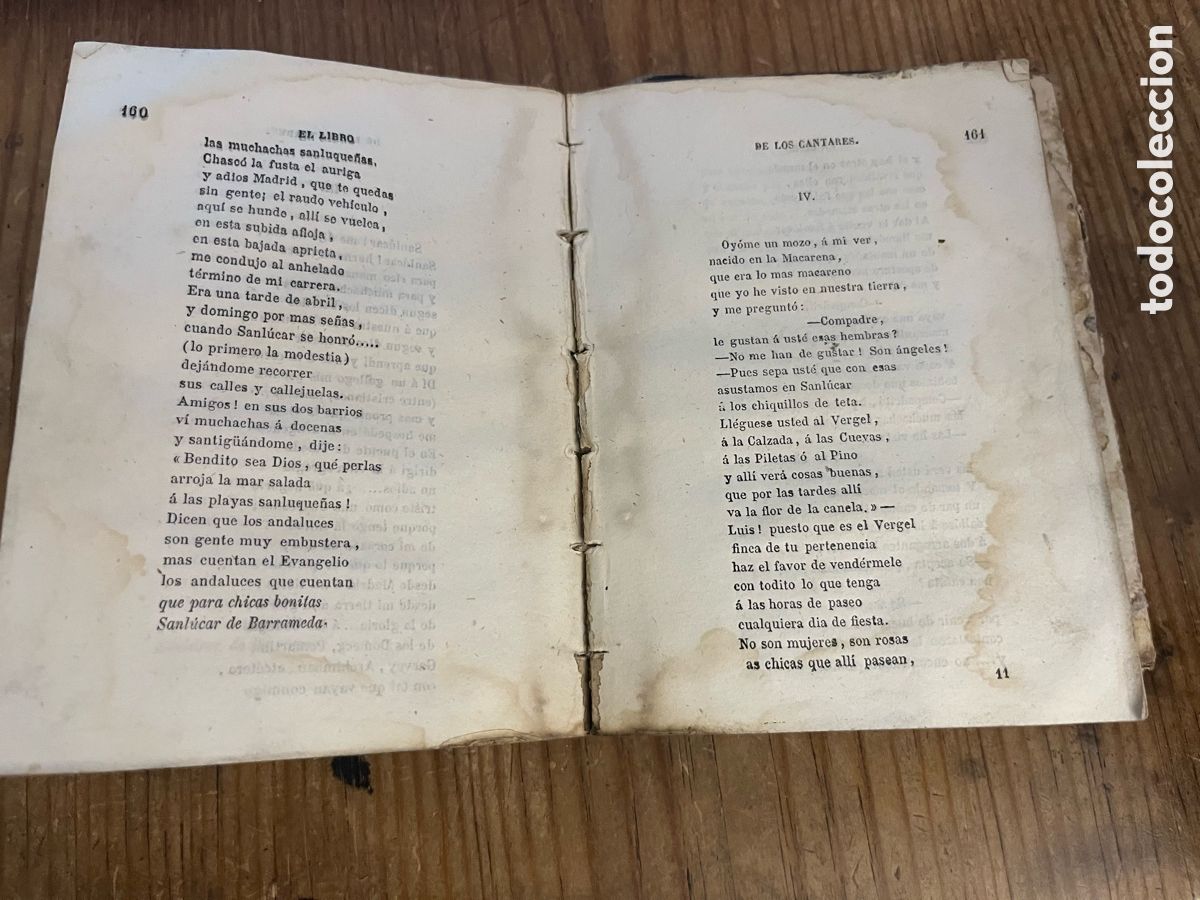 160
EL LIBRO
las muchachas sanluqueñas,
Chascó la fusta el auriga
y adios Madrid, que te quedas
sin gente; el raudo vehículo,
aquí se hunde, allí se vuelca,
en esta subida afloja,
en esta bajada aprieta,
me condujo al anhelado
término de mi carrera.
Era una tarde de abril,
y domingo por mas señas,
cuando Sanlúcar se honró.....
(lo primero la modestia)
dejándome recorrer
sus calles y callejuelas.
Amigos! en sus dos barrios
ví muchachas á docenas
y santigüándome, dije:
«Bendito sea Dios, qué perlas
arroja la mar salada
á las playas sanluqueñas!
Dicen que los andaluces
son gente muy embustera,
mas cuentan el Evangelio
los andaluces que cuentan
que para chicas bonitas
Sanlúcar de Barrameda.
DE LOS CANTARES.
161
IV.
Oyóme un mozo, á mi ver,
nacido en la Macarena,
que era lo mas macareno
que yo he visto en nuestra tierra,
y me preguntó:
—Compadre,
le gustan á usté esas hembras?
—No me han de gustar! Son ángeles!
—Pues sepa usté que con esas
asustamos en Sanlúcar
á los chiquillos de teta.
Lléguese usted al Vergel,
á la Calzada, á las Cuevas,
á las Piletas ó al Pino
y allí verá cosas buenas,
que por las tardes allí
va la flor de la canela.»—
Luis! puesto que es el Vergel
finca de tu pertenencia
haz el favor de vendérmele
con todito lo que tenga
á las horas de paseo
cualquiera dia de fiesta.
No son mujeres, son rosas
as chicas que allí pasean,
11
todocoleccion